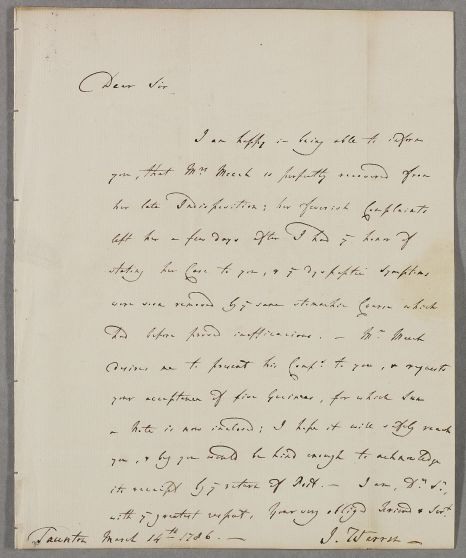 Dear Sir
I am happy in being able to inform
you, that Mrs Meech is perfectly recovered from
her late Indisposition; her feverish Complaints
left her a few days after I had ye honor of
stating her Case to you, & ye dyspeptic Symptoms
were soon removed by ye same stomachic Course which
had before proved inefficacious. — Mr. Meech
desires me to present his Compts. to you, & requests
your acceptance of five Guineas, for which Sum
a Note is now inclosed; I hope it will safely reach
you, & beg you would be kind enough to acknowledge
its receipt by ye return of Post. — I am, Dr. Sr.,
with ye greatest respect, your very obliged Friend & Servt.
Taunton March 14th. 1786. — J. Warren —